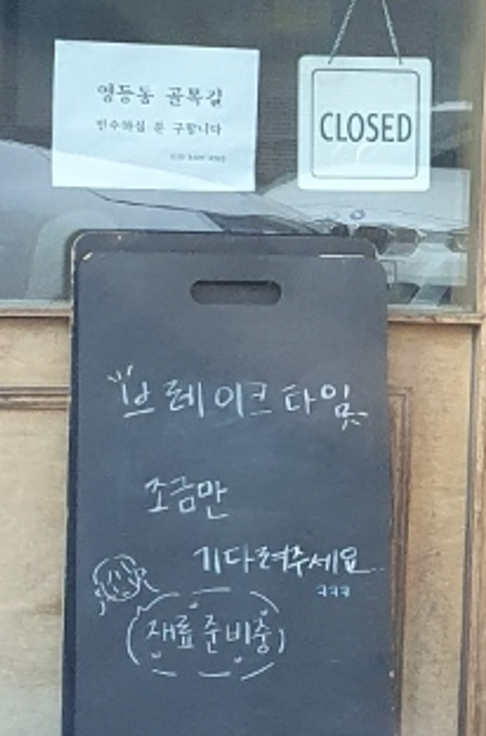 영등동 골목길
인수하실 분 구합니다
CLOSED
브레이크타임
조금만
기다려주세요
ㅋㅋㅋ
재료준비중